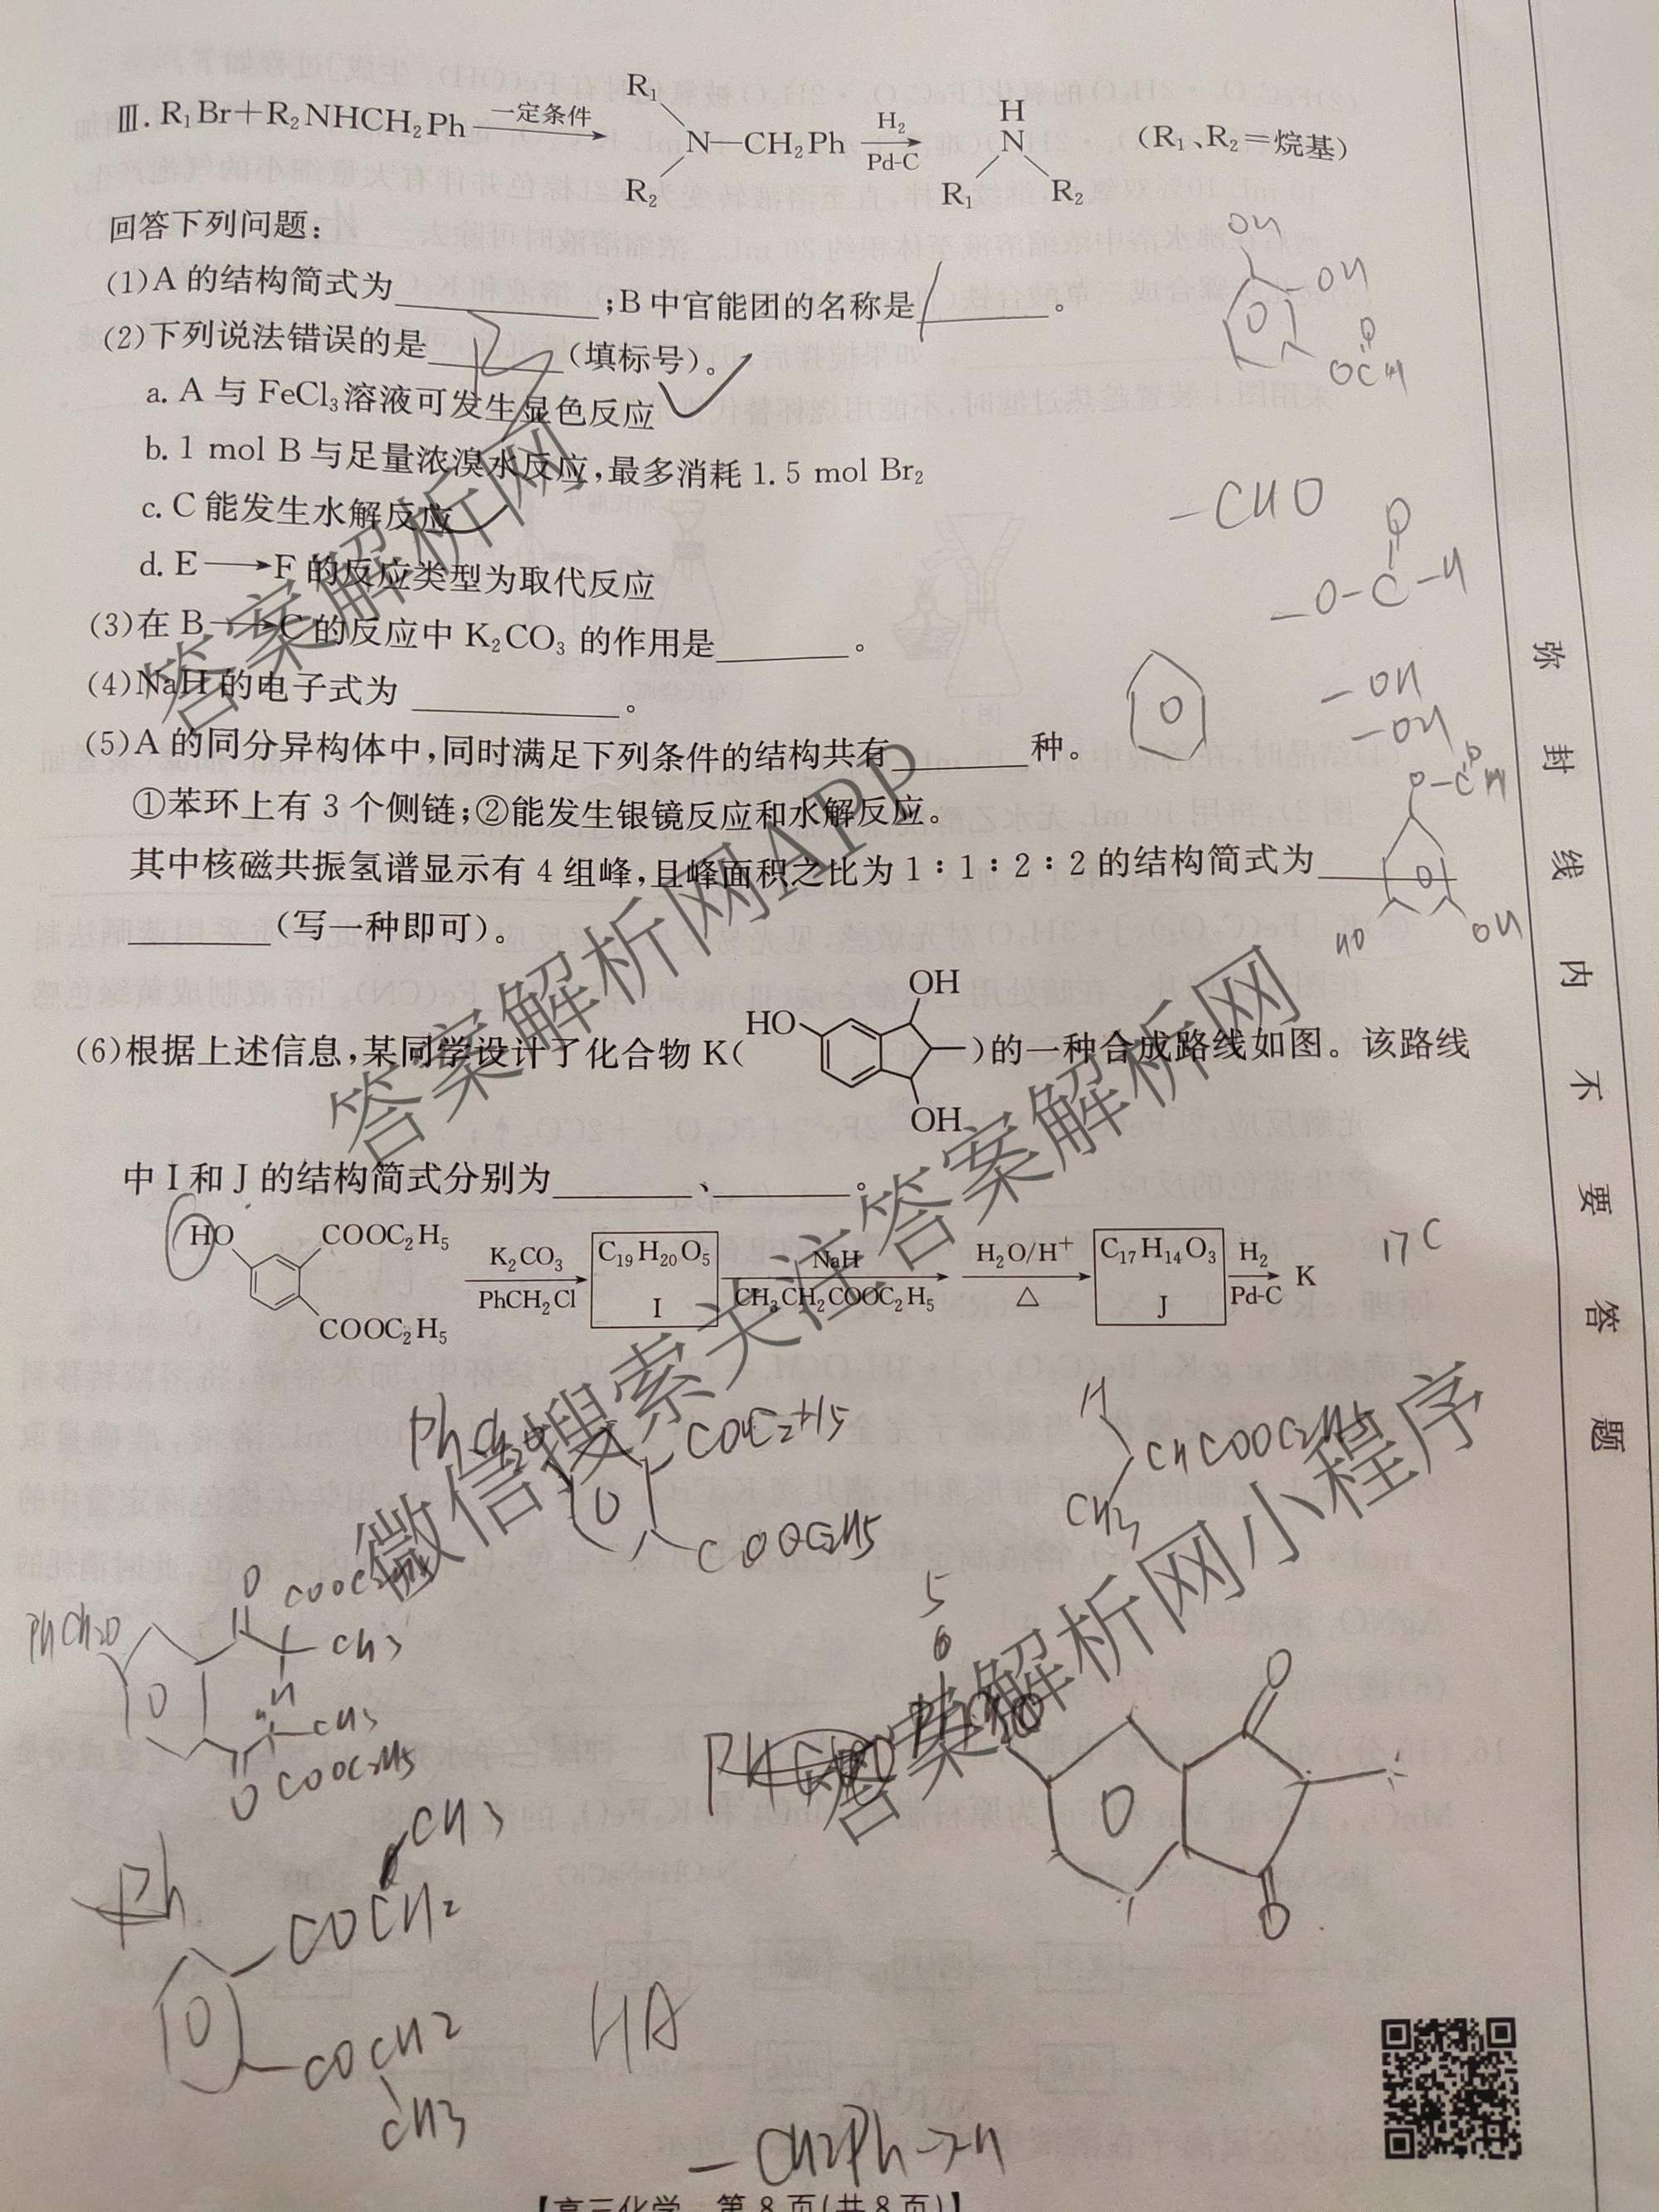 Ⅲ. R₁Br+R₂NHCH₂Ph 一定条件 R₁ R₂ N—CH₂Ph H₂ Pd-C H N R₁ R₂ (R₁、R₂=烷基)
回答下列问题：
(1)A 的结构简式为________;B 中官能团的名称是________。
(2)下列说法错误的是________(填标号)。
a. A 与 FeCl₃溶液可发生显色反应
b. 1 mol B 与足量浓溴水反应,最多消耗 1.5 mol Br₂
c. C 能发生水解反应
d. E⟶F 的反应类型为取代反应
(3)在 B⟶C 的反应中 K₂CO₃ 的作用是________。
(4)NaH 的电子式为________。
(5)A 的同分异构体中,同时满足下列条件的结构共有________种。
①苯环上有 3 个侧链;②能发生银镜反应和水解反应。
其中核磁共振氢谱显示有 4 组峰,且峰面积之比为 1∶1∶2∶2 的结构简式为________
________(写一种即可)。
OH
HO
(6)根据上述信息,某同学设计了化合物 K( )的一种合成路线如图。该路线
OH
中 I 和 J 的结构简式分别为________、________。
HO COOC₂H₅ COOC₂H₅ K₂CO₃ PhCH₂Cl C₁₉H₂₀O₅ I NaH CH₃CH₂COOC₂H₅ H₂O/H⁺ △ C₁₇H₁₄O₃ J H₂ Pd-C K
OH
OH
O
OCH
-CHO
O
-O-C-H
-OH
-OH
O
O-CH
HO
OH
17C
PhCH₂O
COOC₂H₅
COOC₂H₅
H
CHCOOC₂H₅
CH₃
O
PhCH₂O
CH₃
H
CH₃
O COOC₂H₅
5
6
O
O
Ph
CH₃
COCH₂
COCH₂
CH₃
HA
-CH₂Ph→H
弥
封
线
内
不
要
答
题
答案解析网
答案解析网APP
微信搜索关注答案解析网
答案解析网小程序
【高三化学 第 8 页(共 8 页)】